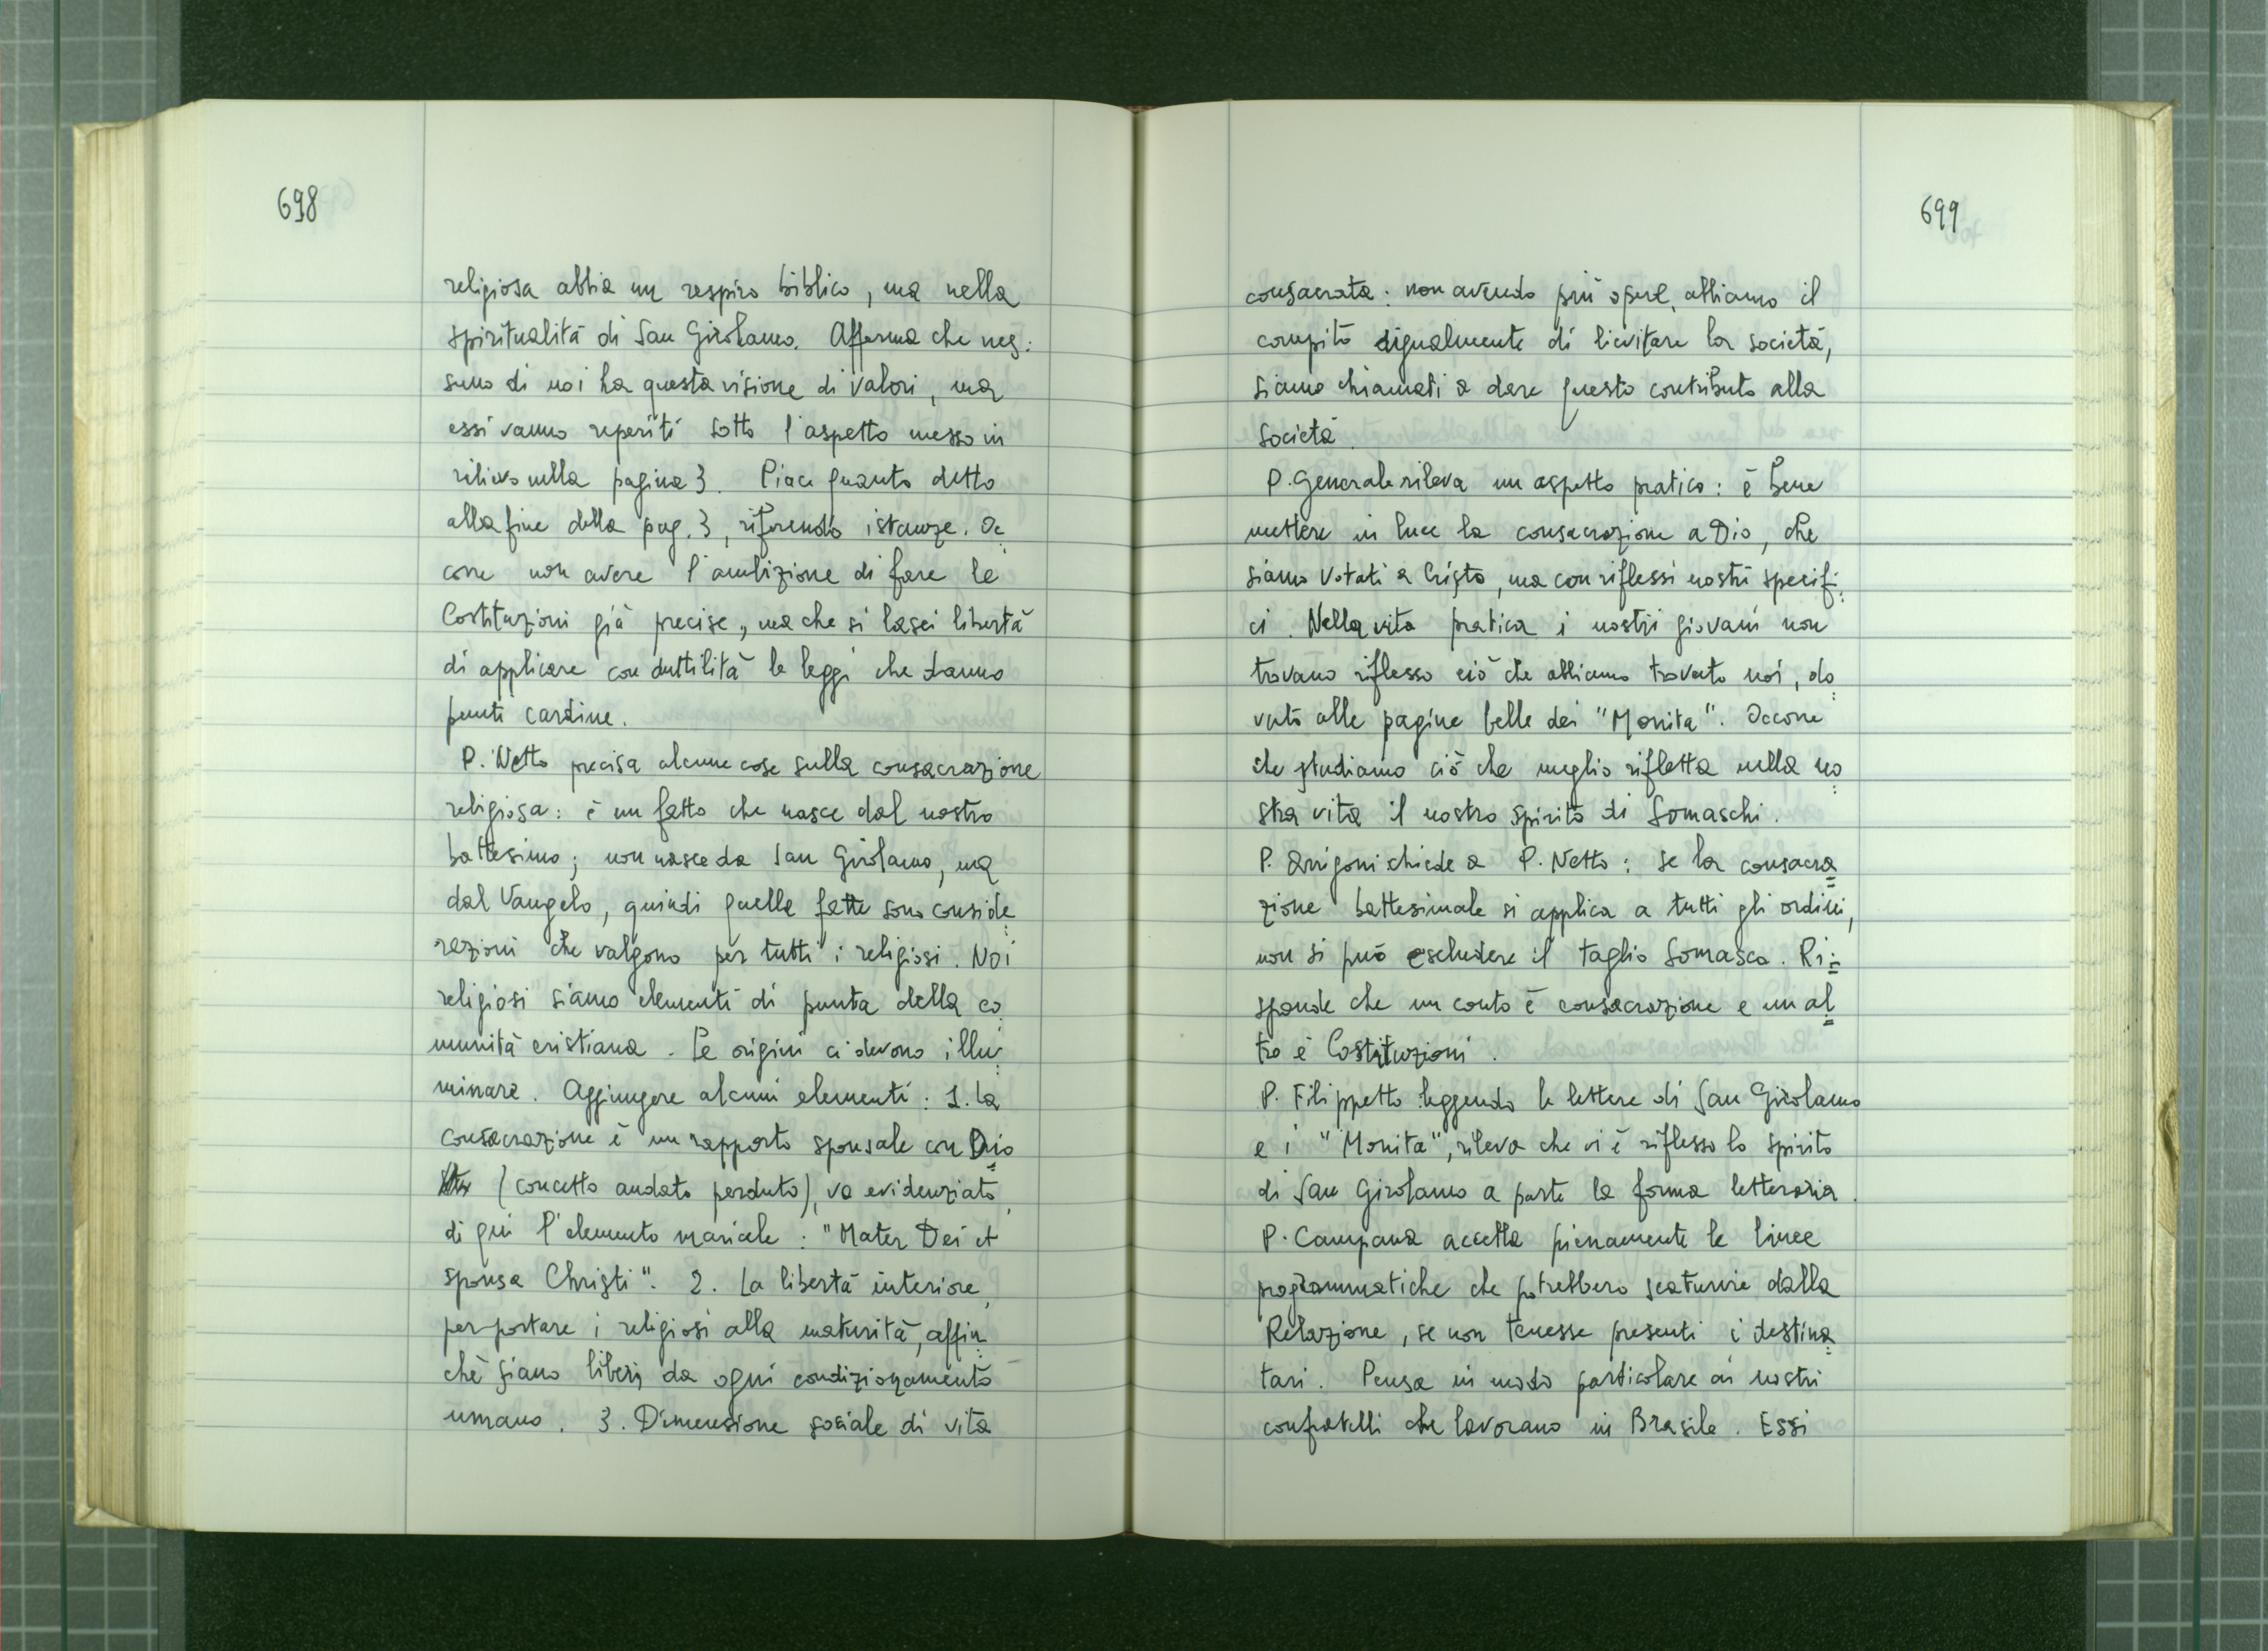 698
religiosa abbia un respiro biblico, ma nella
spiritualità di San Girolamo. Afferma che nes:
suno di noi ha questa visione di valori, ma
essi vanno reperiti sotto l'aspetto messo in
rilievo nella pagina 3. Piace quanto detto
alla fine della pag. 3, riferendo istanze. Oc
corre non avere l'ambizione di fare le
Costituzioni già precise, ma che si lasci libertà
di applicare con duttilità le leggi che danno
punti cardine.
P. Netto precisa alcune cose sulla consacrazione
religiosa: è un fatto che nasce dal nostro
battesimo; non nasce da San Girolamo, ma
dal Vangelo, quindi quelle fatte sono conside
razioni che valgono per tutti i religiosi. Noi
religiosi siamo elementi di punta della co
munità cristiana. Le origini ci devono illu
minare. Aggiungere alcuni elementi: 1. la
consacrazione è un rapporto sponsale con Dio
(concetto andato perduto), va evidenziato,
di qui l'elemento mariale: "Mater Dei et
sponsa Christi". 2. La libertà interiore,
per portare i religiosi alla maturità, affin
chè siano liberi da ogni condizionamento
umano. 3. Dimensione sociale di vita
699
consacrata: non avendo più opere, abbiamo il
compito egualmente di lievitare la società,
siamo chiamati a dare questo contributo alla
società.
P. Generale rileva un aspetto pratico: è bene
mettere in luce la consacrazione a Dio, che
siamo votati a Cristo, ma con riflessi nostri specifi:
ci. Nella vita pratica i nostri giovani non
trovano riflesso ciò che abbiamo trovato noi, do
vuto alle pagine belle dei "Monita". Occorre
che studiamo ciò che meglio rifletta nella no
stra vita il nostro spirito di Somaschi.
P. Arrigoni chiede a P. Netto: se la consacra
zione battesimale si applica a tutti gli ordini,
non si può escludere il taglio Somasco. Ri:
sponde che un conto è consacrazione e un al
tro è Costituzioni.
P. Filippetto leggendo le lettere di San Girolamo
e i "Monita", rileva che vi è riflesso lo spirito
di San Girolamo a parte la forma letteraria.
P. Campana accetta pienamente le linee
programmatiche che potrebbero scaturire dalla
Relazione, se non tenesse presenti i destina
tari. Pensa in modo particolare ai nostri
confratelli che lavorano in Brasile. Essi